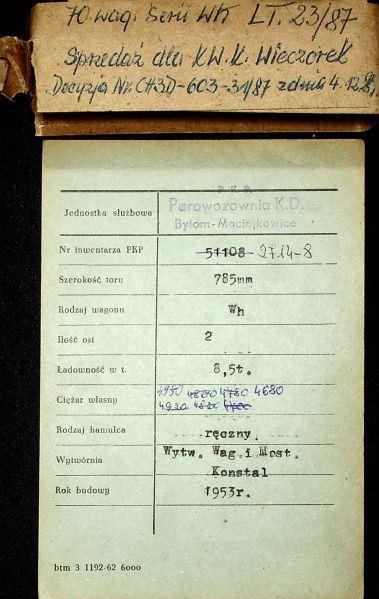 70 wag. Serii Wh LT. 23/87
Sprzedaż dla KW.K. Wieczorek
Decyzja Nr. CH3D-603-31/87 z dnia 4.12.
P.K.P.
Jednostka służbowa Parowozownia K.D.
Bytom-Maciejkowice
Nr inwentarza PKP 51108 2714-8
Szerokość toru 785mm
Rodzaj wagonu Wh
Ilość osi 2
Ładowność w t. 8,5t.
Ciężar własny 4950 4880 4780 4680
4920 4820
Rodzaj hamulca ręczny.
Wytwórnia Wytw. Wag. i Most.
Konstal
Rok budowy 1953r.
btm 3 1192-62 6000